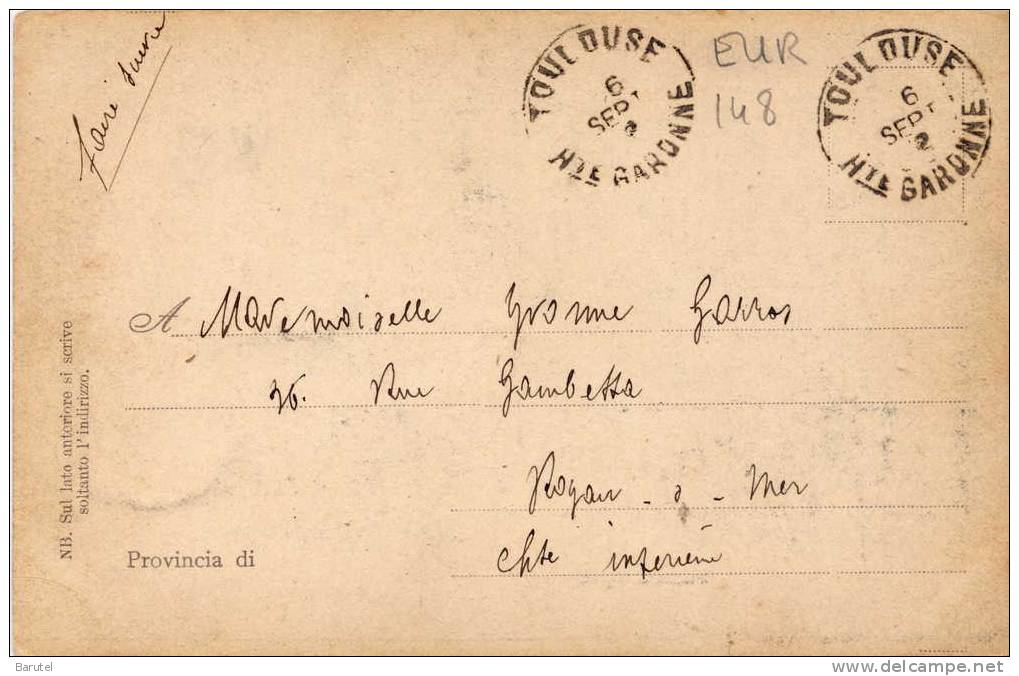 Faire suivre
TOULOUSE
6
SEPT
HTE GARONNE
EUR
148
TOULOUSE
6
SEPT
HTE GARONNE
A Mademoiselle Yvonne Garros
Rue Gambetta
Royan - s - Mer
Provincia di
Chte inferieure
NB. Sul lato anteriore si scrive
soltanto l'indirizzo.
Barutel
delcampe.net